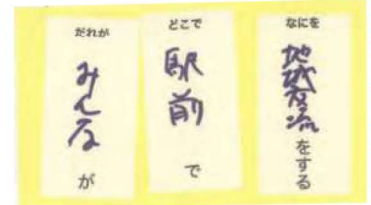 だれが
みんなが
どこで
駅前で
なにを
地域交流をする